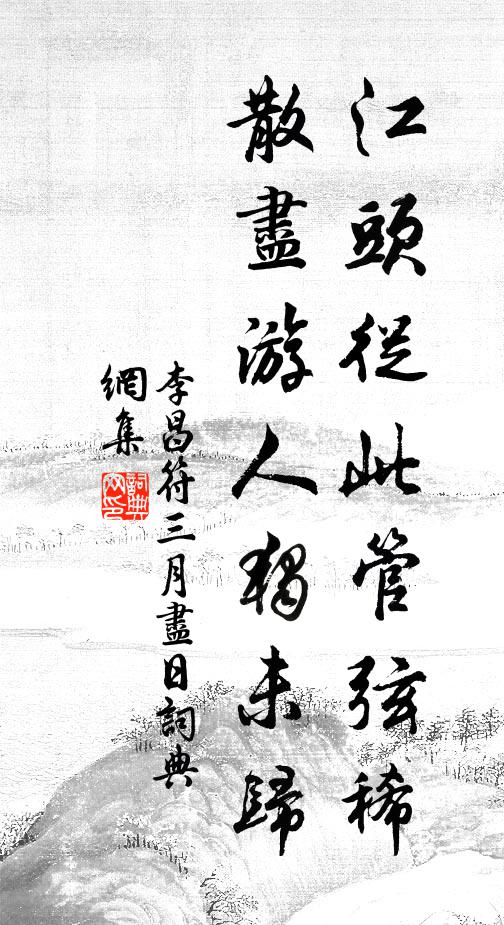 江頭從此管弦稀
散盡游人獨未歸
李昌符三月盡日詞典
網集
詞典
网印